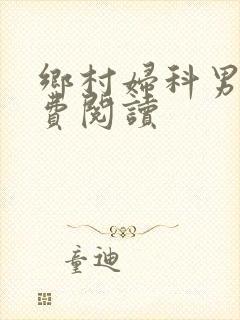 鄉村婦科男
費閱讀
童迪